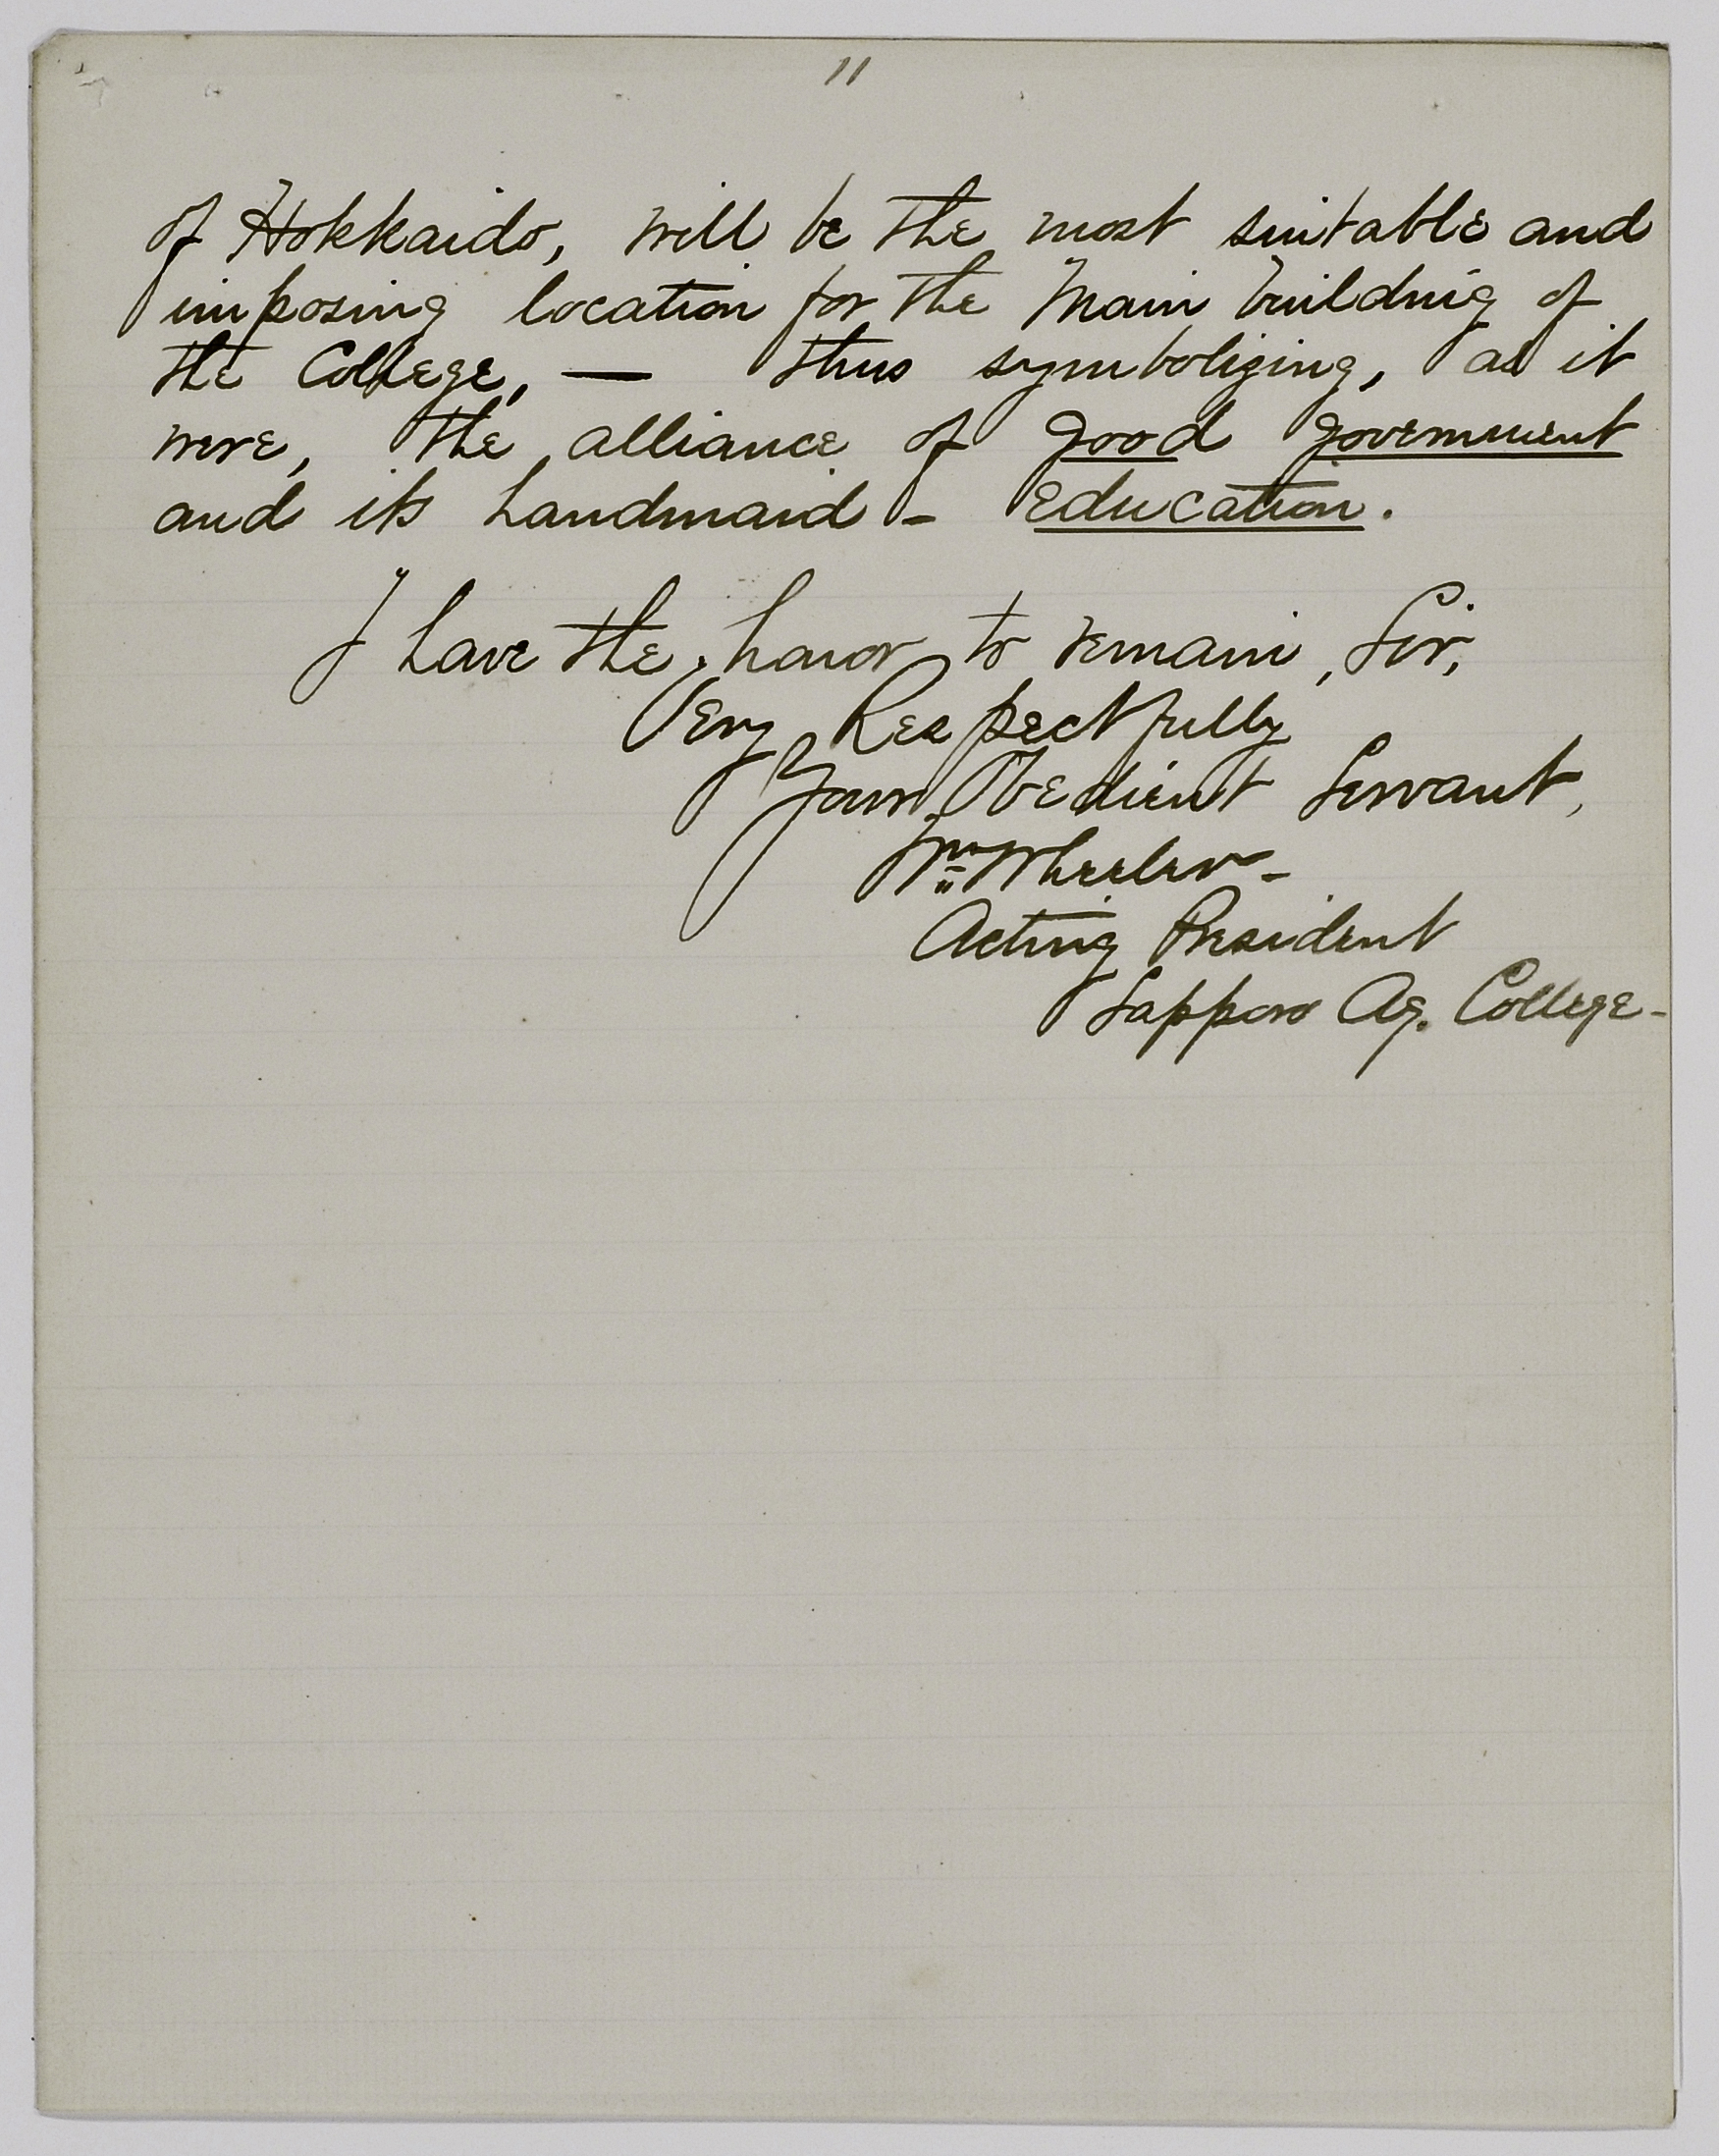 11
of Hokkaido, will be the most suitable and
imposing location for the Main building of
the College, — thus symbolizing, as it
were, the alliance of good government
and its handmaid - Education.
I have the honor to remain, Sir,
Very Respectfully
Your Obedient Servant,
Wm Wheeler -
Acting President
Sapporo Ag. College -